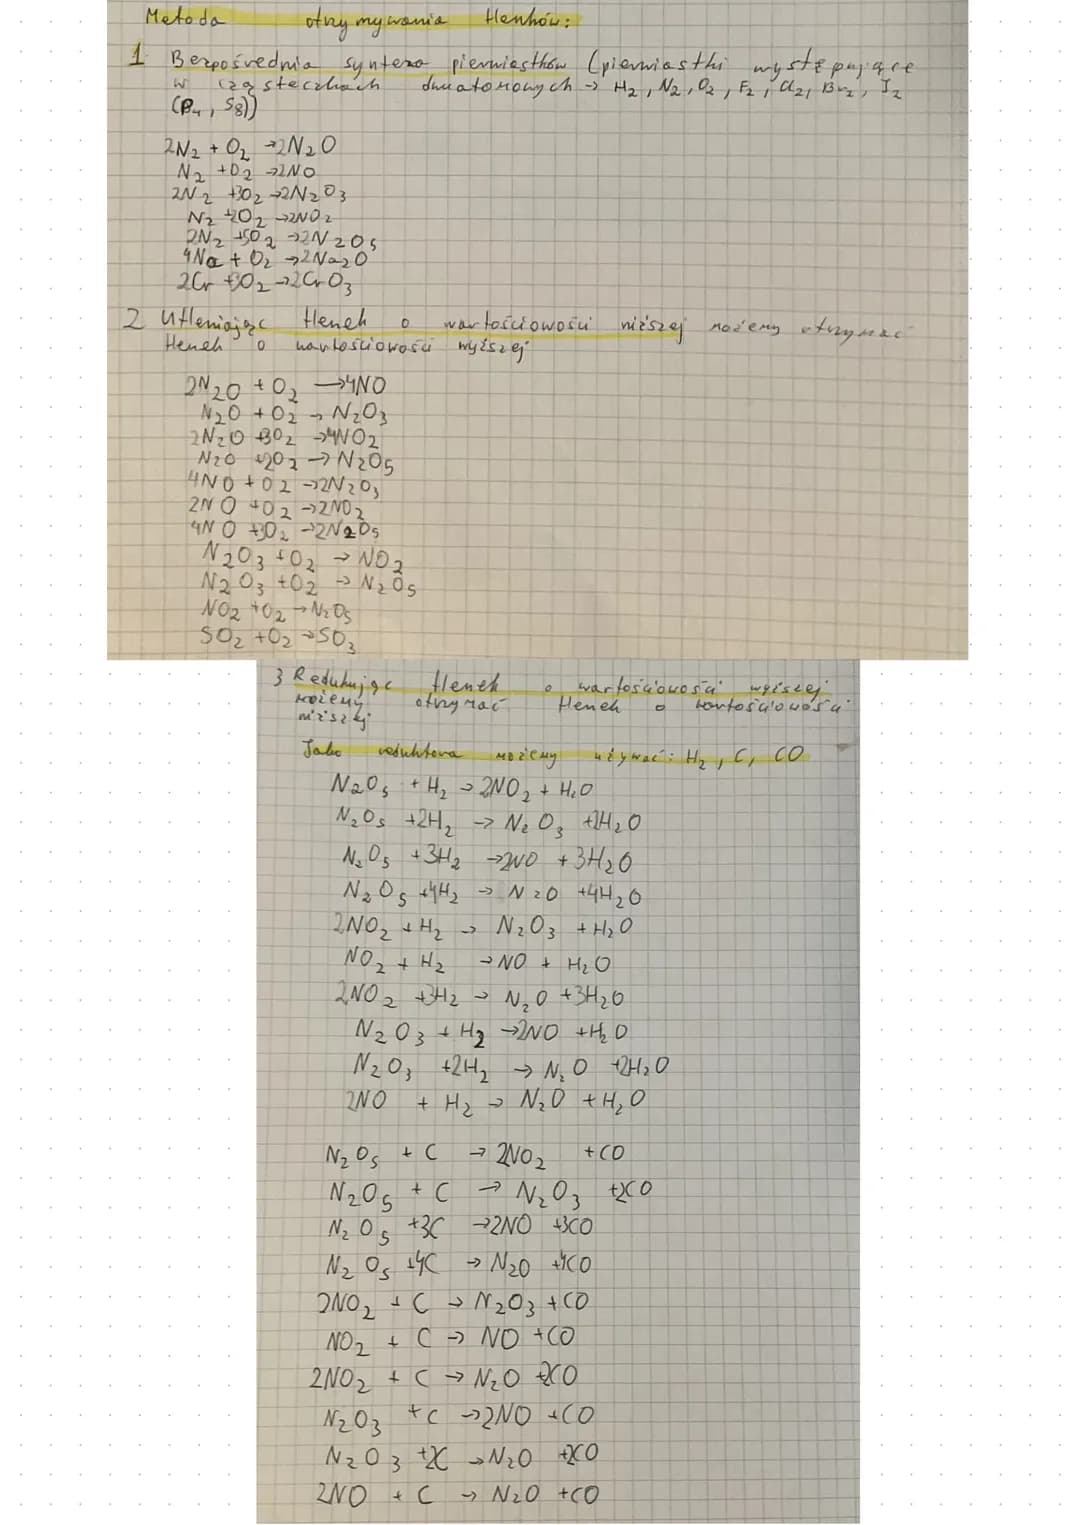 Metoda otrzymywania tlenków:
1 Bezpośrednia synteza pierwiastków (pierwiastki występujące
w cząsteczkach dwuatomowych → H₂, N₂, O₂, F₂, Cl₂, Br₂, I₂
(P₄, S₈))
2N₂ + O₂ → 2N₂O
N₂ + O₂ → 2NO
2N₂ + 3O₂ → 2N₂O₃
N₂ + 2O₂ → 2NO₂
2N₂ + 5O₂ → 2N₂O₅
4Na + O₂ → 2Na₂O
2Cr + 3O₂ → 2CrO₃
2 Utleniając tlenek o wartościowości niższej możemy otrzymać
tlenek o wartościowości wyższej
2N₂O + O₂ → 4NO
N₂O + O₂ → N₂O₃
2N₂O + 3O₂ → 4NO₂
N₂O + 2O₂ → N₂O₅
4NO + O₂ → 2N₂O₃
2NO + O₂ → 2NO₂
4NO + 3O₂ → 2N₂O₅
N₂O₃ + O₂ → NO₂
N₂O₃ + O₂ → N₂O₅
NO₂ + O₂ → N₂O₅
SO₂ + O₂ → SO₃
3 Redukując tlenek o wartościowości wyższej
możemy otrzymać tlenek o wartościowości
niższej
Jako reduktora możemy używać: H₂, C, CO
N₂O₅ + H₂ → 2NO₂ + H₂O
N₂O₅ + 2H₂ → N₂O₃ + 2H₂O
N₂O₅ + 3H₂ → 2NO + 3H₂O
N₂O₅ + 4H₂ → N₂O + 4H₂O
2NO₂ + H₂ → N₂O₃ + H₂O
NO₂ + H₂ → NO + H₂O
2NO₂ + 3H₂ → N₂O + 3H₂O
N₂O₃ + H₂ → 2NO + H₂O
N₂O₃ + 2H₂ → N₂O + 2H₂O
2NO + H₂ → N₂O + H₂O
N₂O₅ + C → 2NO₂ + CO
N₂O₅ + C → N₂O₃ + 2CO
N₂O₅ + 3C → 2NO + 3CO
N₂O₅ + 4C → N₂O + 4CO
2NO₂ + C → N₂O₃ + CO
NO₂ + C → NO + CO
2NO₂ + C → N₂O + 2CO
N₂O₃ + C → 2NO + CO
N₂O₃ + 2C → N₂O + 2CO
2NO + C → N₂O + CO